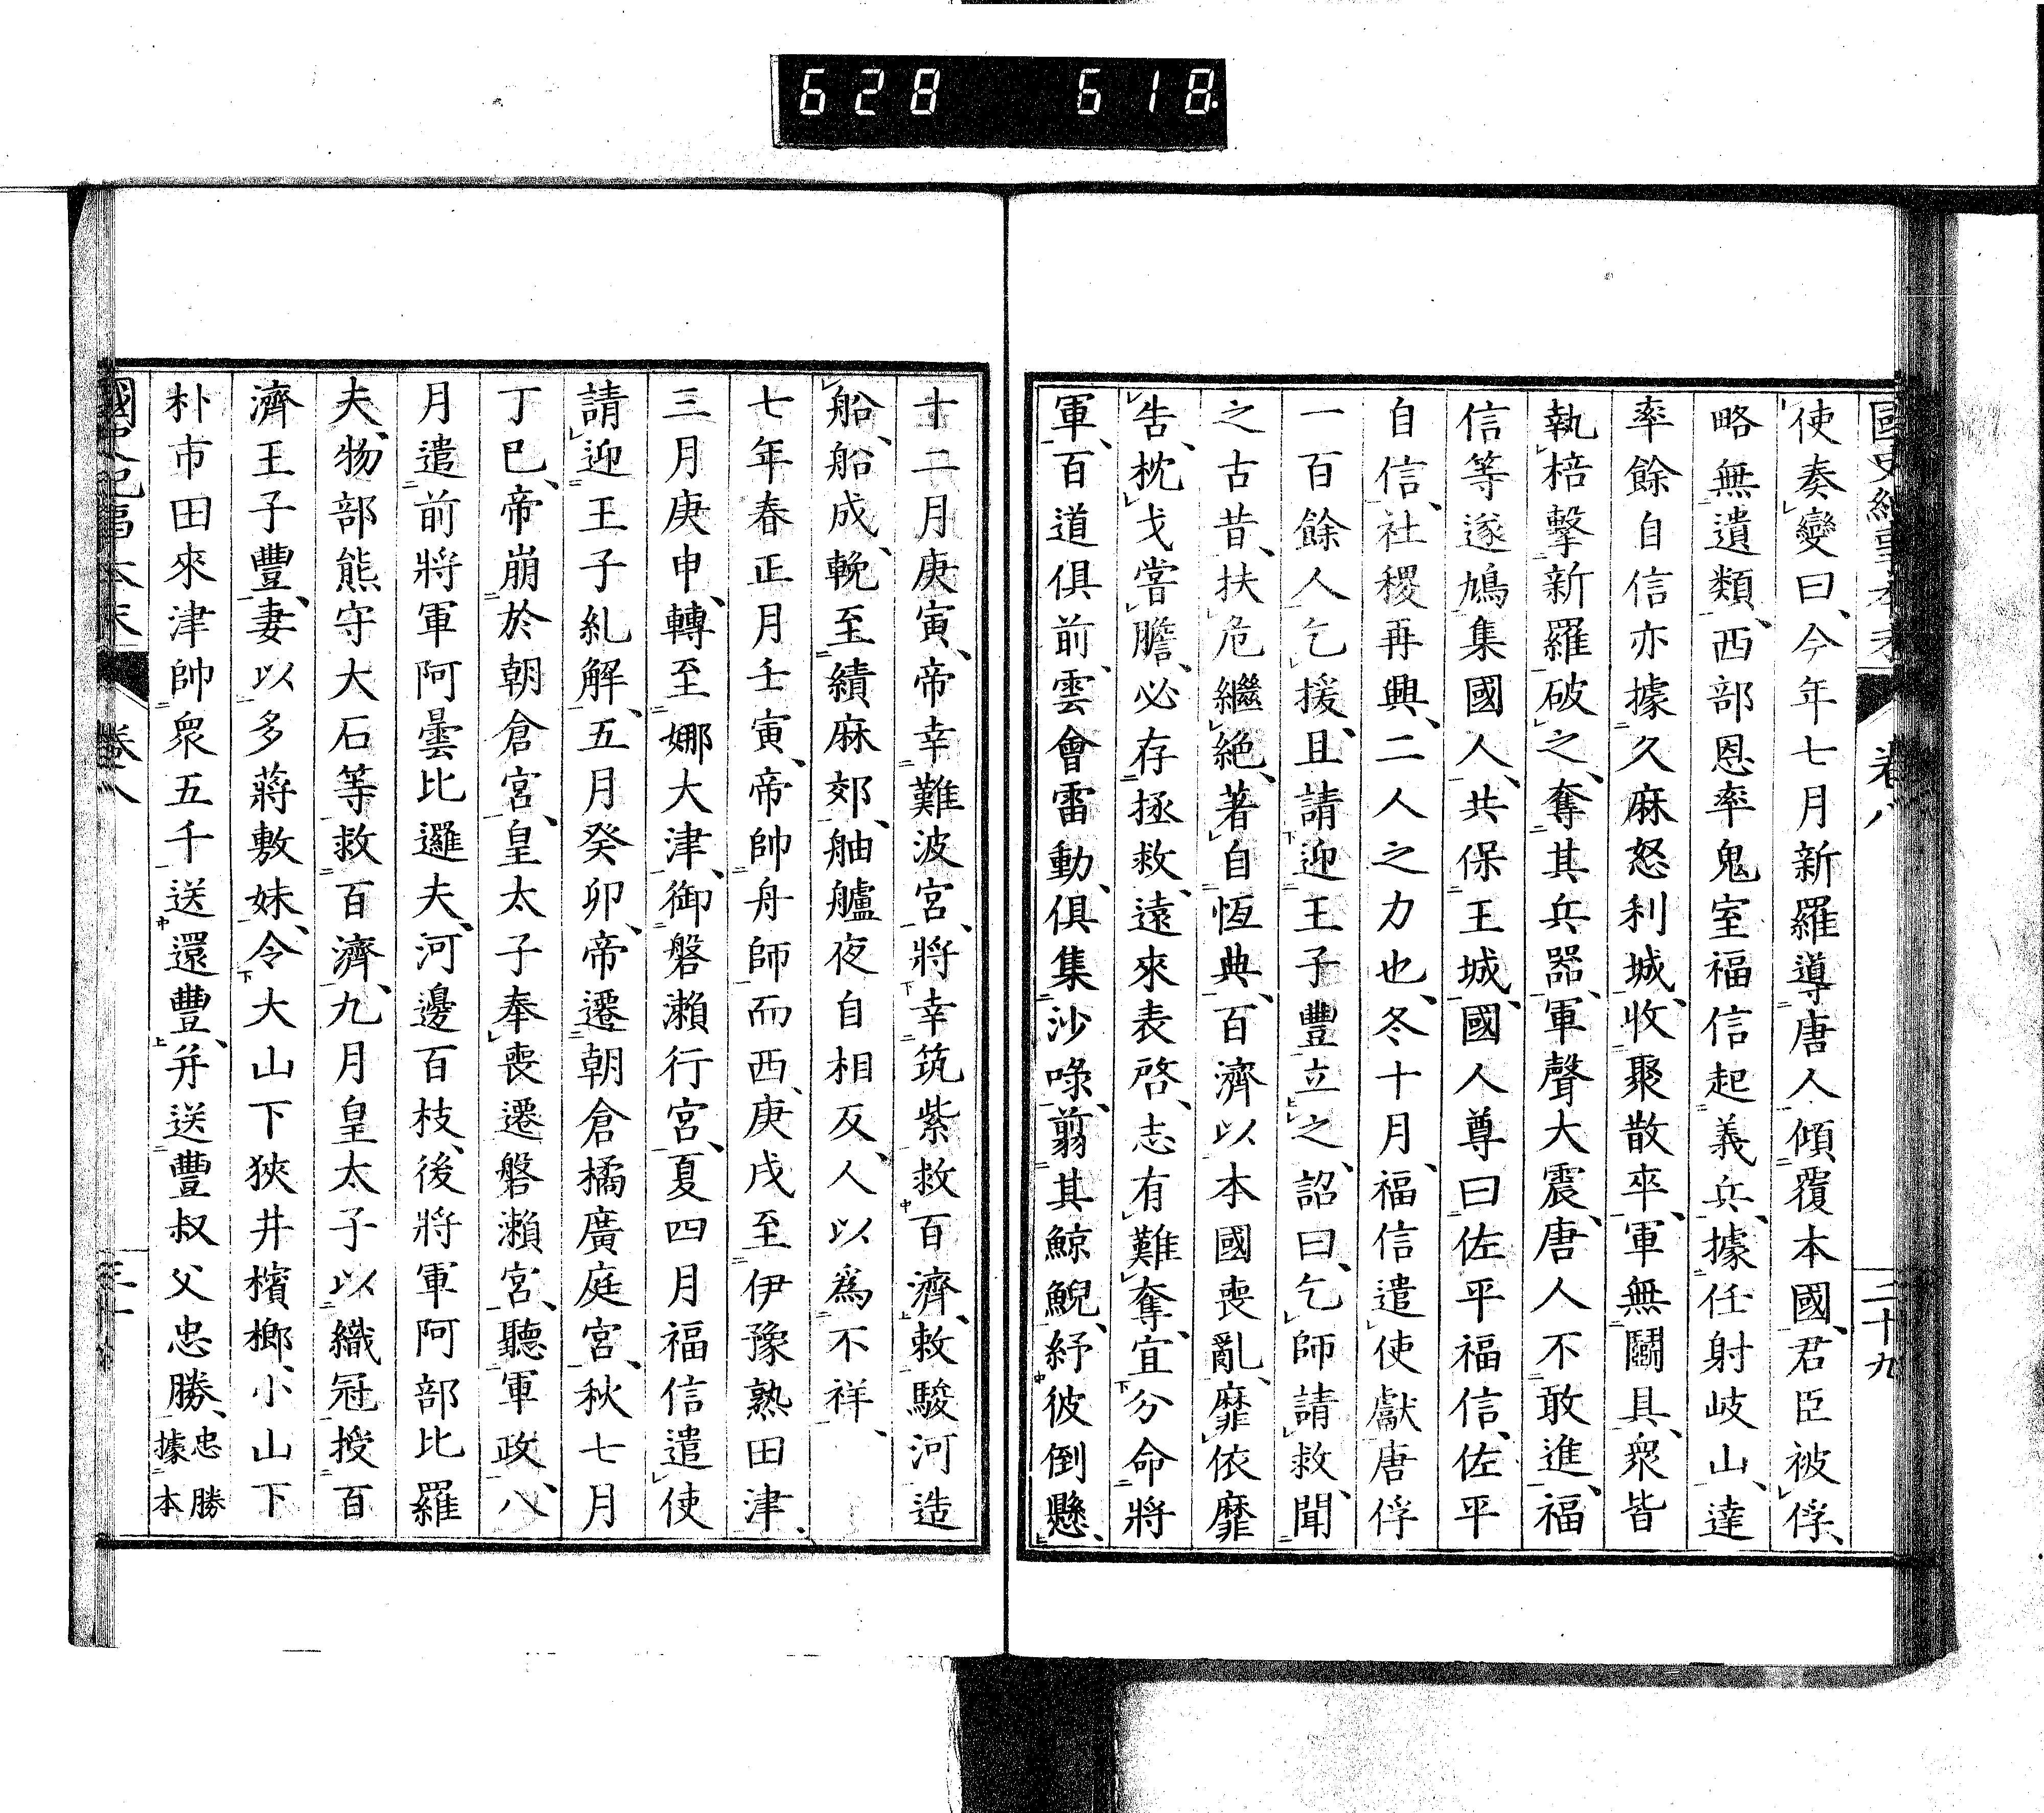 628 618.
國史紀事本末 卷八 三十九
使奏變曰、今年七月新羅導唐人傾覆本國、君臣被俘、
略無遺類、西部恩率鬼室福信起義兵、據任射岐山、達
率餘自信亦據久麻怒利城、收聚散卒、軍無鬪具、衆皆
執棓擊新羅破之、奪其兵器、軍聲大震、唐人不敢進、福
信等遂鳩集國人、共保王城、國人尊曰佐平福信、佐平
自信、社稷再興、二人之力也、冬十月、福信遣使獻唐俘
一百餘人乞援、且請迎王子豐立之、詔曰、乞師請救、聞
之古昔、扶危繼絕、著自恆典、百濟以本國喪亂、靡依靡
告、枕戈嘗膽、必存拯救、遠來表啓、志有難奪、宜分命將
軍、百道俱前、雲會雷動、俱集沙喙、翦其鯨鯢、紓彼倒懸、
十二月庚寅、帝幸難波宮、將幸筑紫救百濟、敕駿河造
船、船成、輓至績麻郊、舳艫夜自相反、人以爲不祥、
七年春正月壬寅、帝帥舟師而西、庚戌至伊豫熟田津、
三月庚申、轉至娜大津、御磐瀨行宮、夏四月福信遣使
請迎王子糺解、五月癸卯、帝遷朝倉橘廣庭宮、秋七月
丁巳、帝崩於朝倉宮、皇太子奉喪遷磐瀨宮、聽軍政、八
月遣前將軍阿曇比邏夫、河邊百枝、後將軍阿部比羅
夫、物部熊守大石等救百濟、九月皇太子以織冠授百
濟王子豐、妻以多蔣敷妹、令大山下狹井檳榔、小山下
朴市田來津帥衆五千送還豐、并送豐叔父忠勝、忠勝
據本
國史紀事本末 卷八